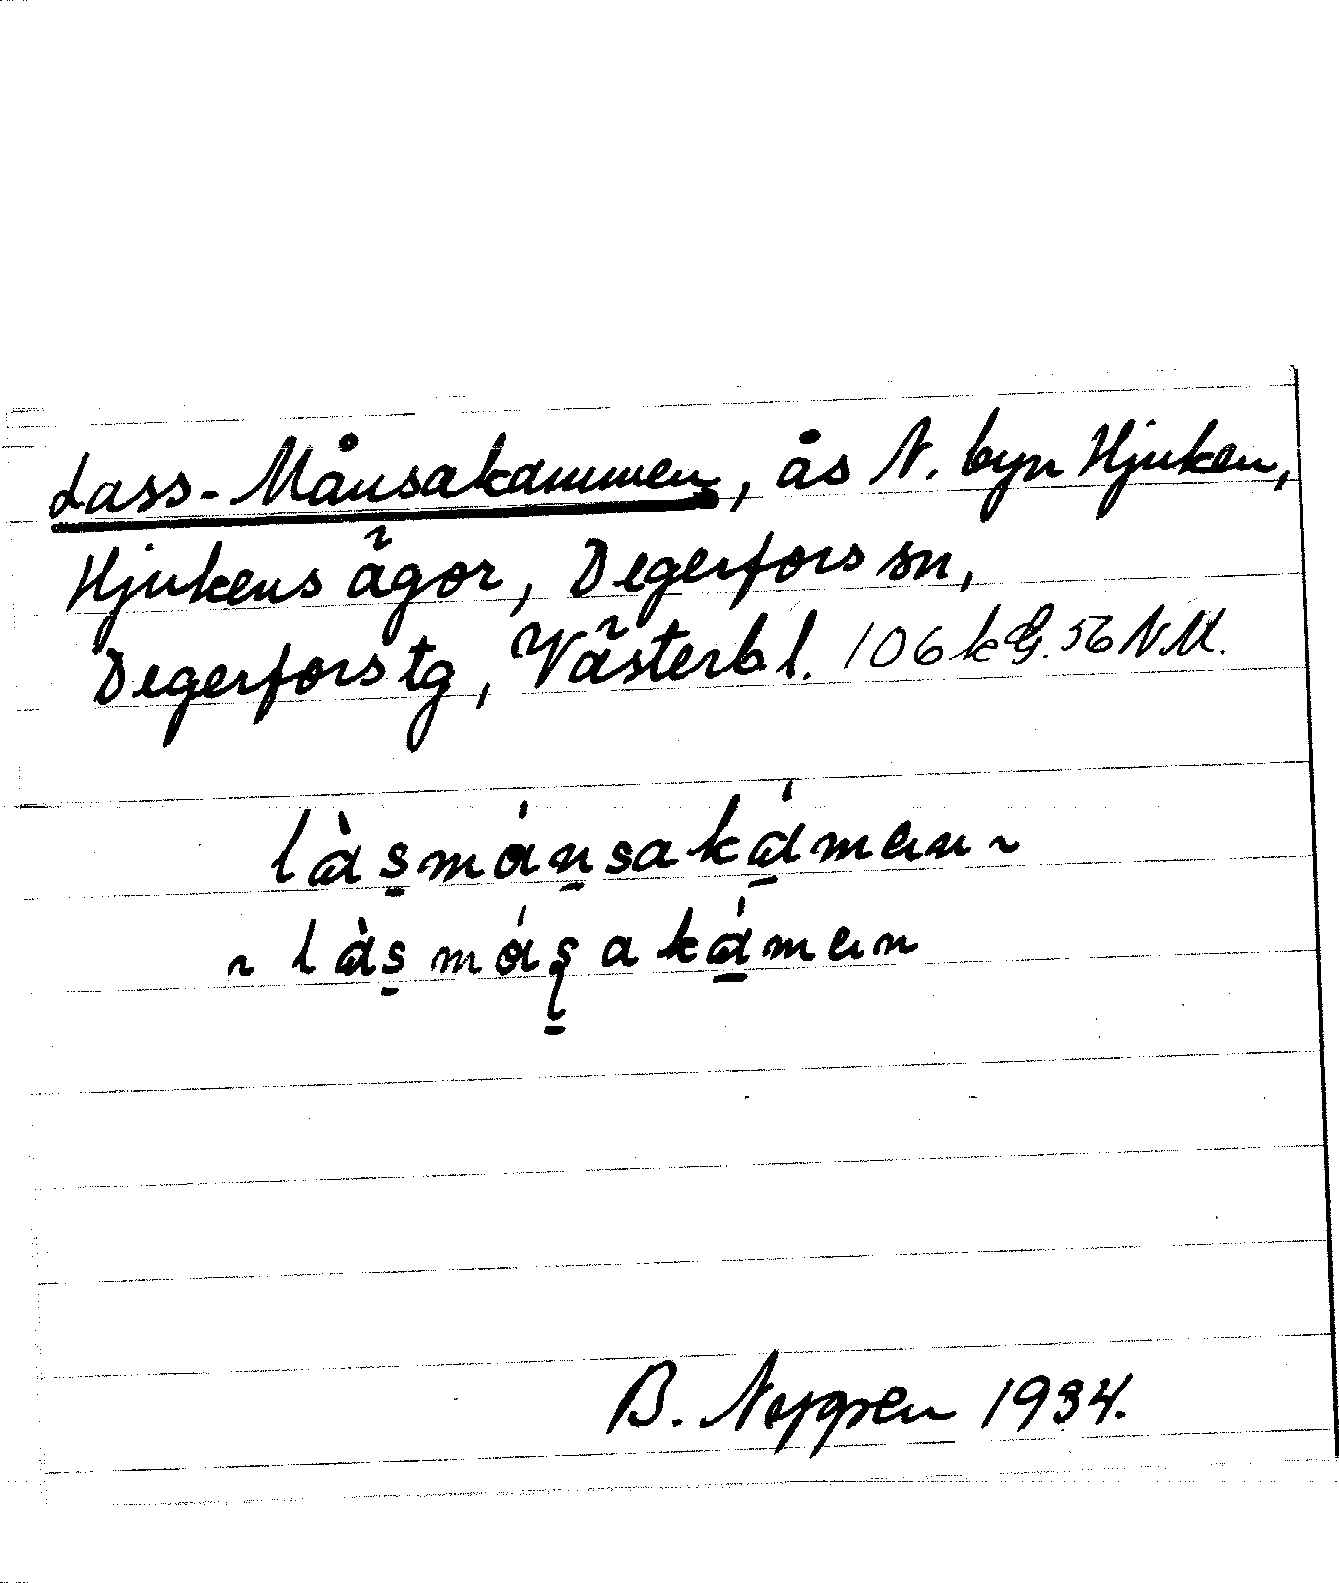 Lass-Månsakammen, ås N. byn Hjuken,
Hjukens ägor, Degerfors sn,
Degerfors tg, Västerb.l. 106 k G. 56 N.M.
làsmánsakámen ~
~ làsmáṣakámen
B. Nygren 1934.